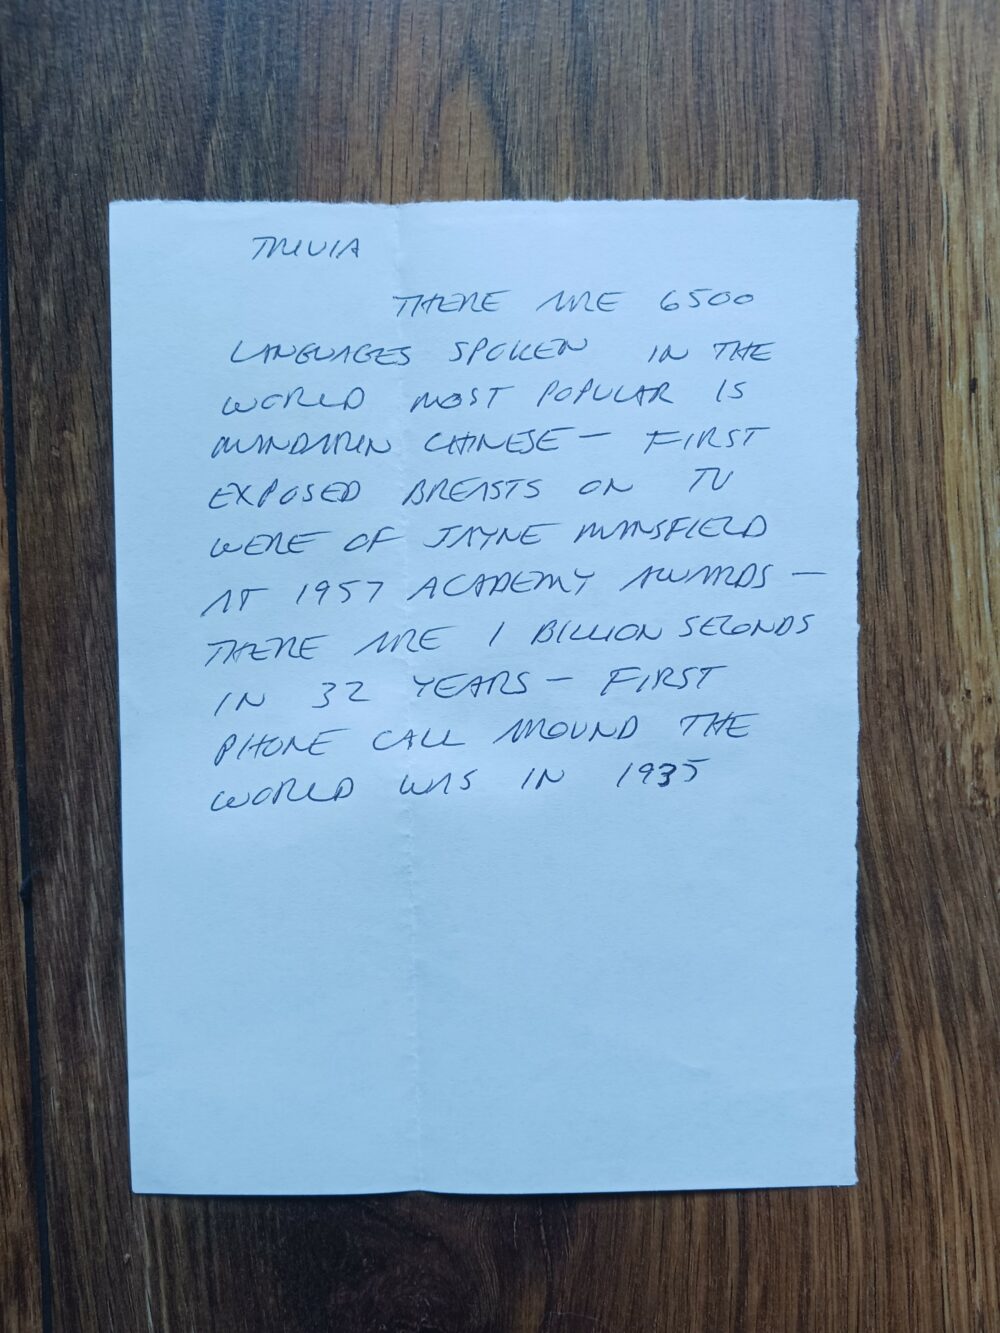 TRIVIA
THERE ARE 6500
LANGUAGES SPOKEN IN THE
WORLD MOST POPULAR IS
MANDARIN CHINESE — FIRST
EXPOSED BREASTS ON TV
WERE OF JAYNE MANSFIELD
AT 1957 ACADEMY AWARDS —
THERE ARE 1 BILLION SECONDS
IN 32 YEARS — FIRST
PHONE CALL AROUND THE
WORLD WAS IN 1935